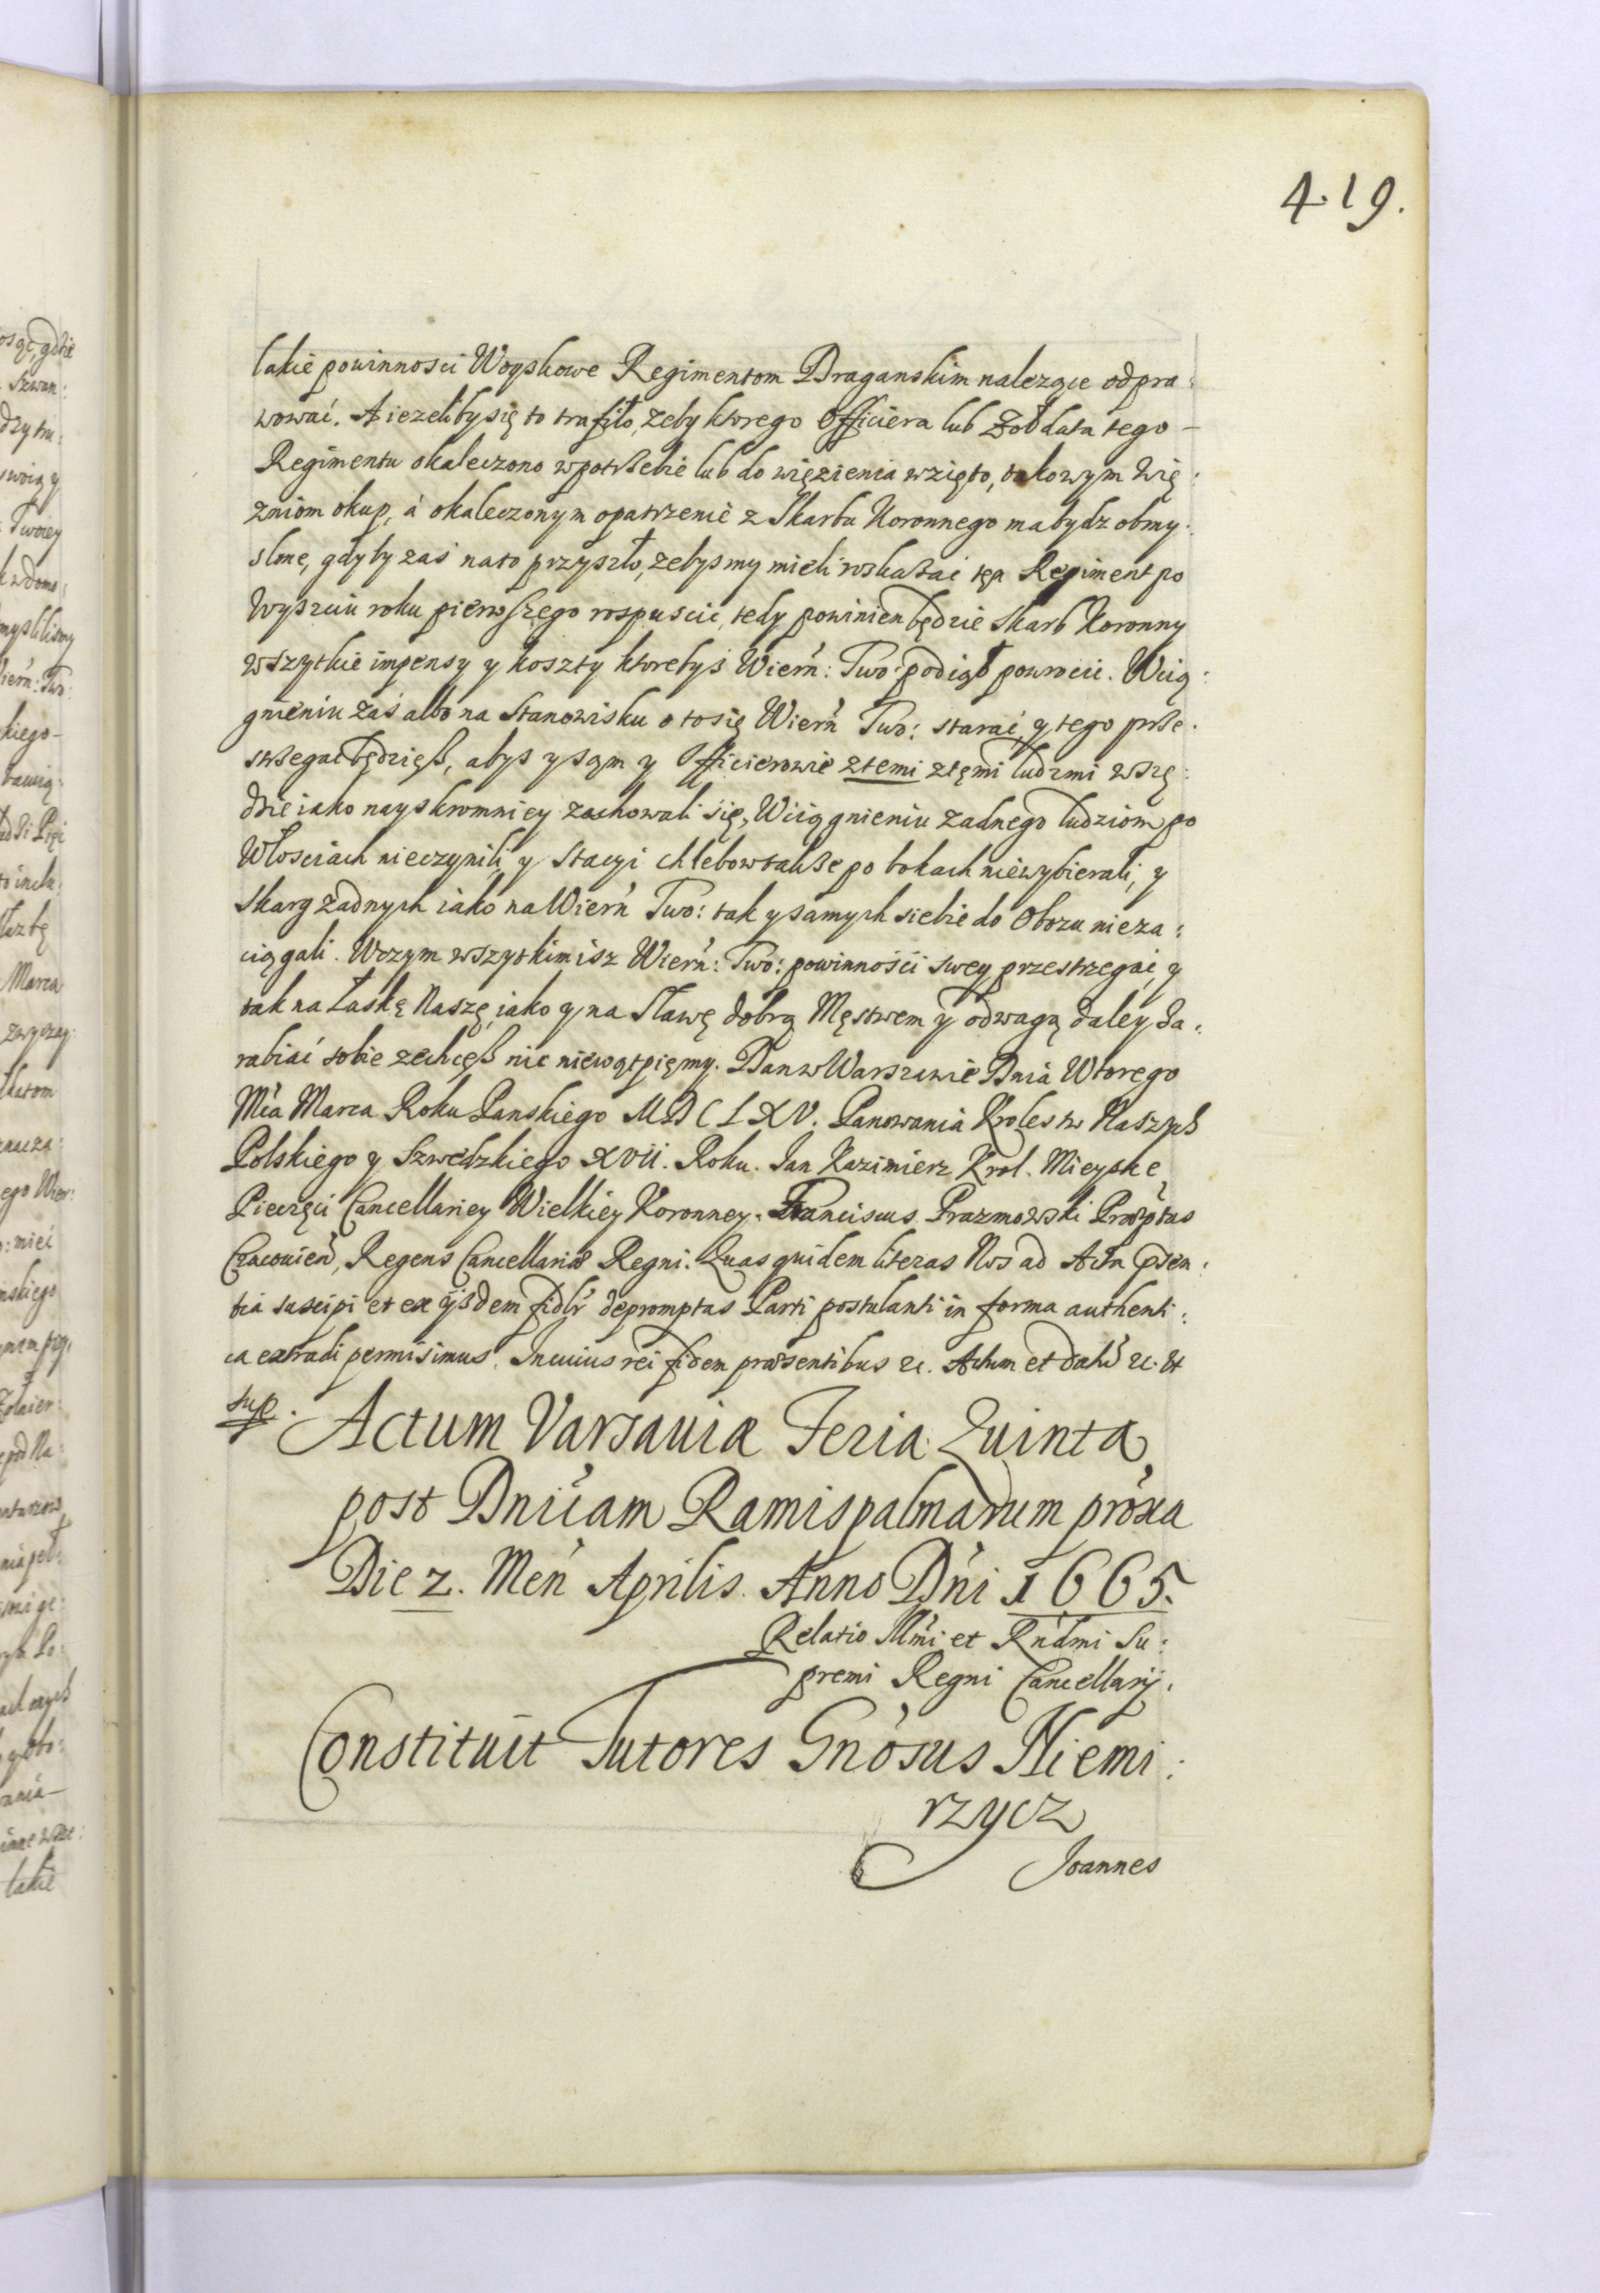 4.19.
lakie powinnosci Woyskowe Regimentom Draganskim nalezące odpra:
wować. A iezeliby się to trafiło, zeby ktorego Officiera lub Zołdata tego –
Regimentu okaleczono w potrzebie lub do więzienia wzięto, takowym Wię:
zniom okup, á okaleczonym opatrzenie z Skarbu Koronnego ma bydz obmy:
slone, gdyby zaś na to przyszło, zebysmy mieli roskazać tęn Regiment po
Wyszciu roku pierwszego rospuscic, tedy powinien będzie Skarb Koronny
wszytkie impensy y koszty ktorebyś Wiern: Two: podiął powrocic. Wcią:
gnieniu zaś albo na Stanowisku o to się Wiern Two: starać, y tego prze:
strzegac będziesz, abys y sąm y Officierowie ztemi ztęmi ludzmi wszę:
dzie iako nayskromniey zachowali się, Wciągnieniu zadnego ludziom po
Włosciach nieczynili, y Stacyi chlebow takze po bokach niewybierali, y
Skarg zadnych iako na Wiern Two: tak y samych siebie do Obozu nieza:
ciągali. Wczym wszytkim isz Wiern: Two: powinności swey przestrzegać, y
tak na Łaskę Naszę, iako y na Sławę dobrą Męstwem y odwagą daley za:
rabiać sobie zechcesz nic niewątpięmy. Dan w Warszawie Dnia Wtorego
Mca Marca Roku Panskiego MDCLXV. Panowania Krolestw Naszych
Polskiego y Szwedzkiego XVII. Roku. Jan Kazimierz Krol. Mieysce
Pieczęci Cancellariey Wielkiey Koronney. Franciscus Prazmowski Præptas
Cracouien, Regens Cancellariæ Regni. Quas quidem literas Nos ad Acta psen:
tia suscipi et ex ijsdem fidlr depromptas Parti postulanti in forma authenti:
ca extradi permisimus. In cuius rei fidem præsentibus &c. Actum et datū &c. Ut
sup.
Actum Varsauiæ Feria Quinta
post Dnicam Ramispalmarum proxa
Die 2. Men Aprilis Anno Dni 1665.
Relatio Illmi et Rndmi Su:
premi Regni Cancellarij.
Constituit Tutores Gnosus Niemi:
rzycz
Joannes